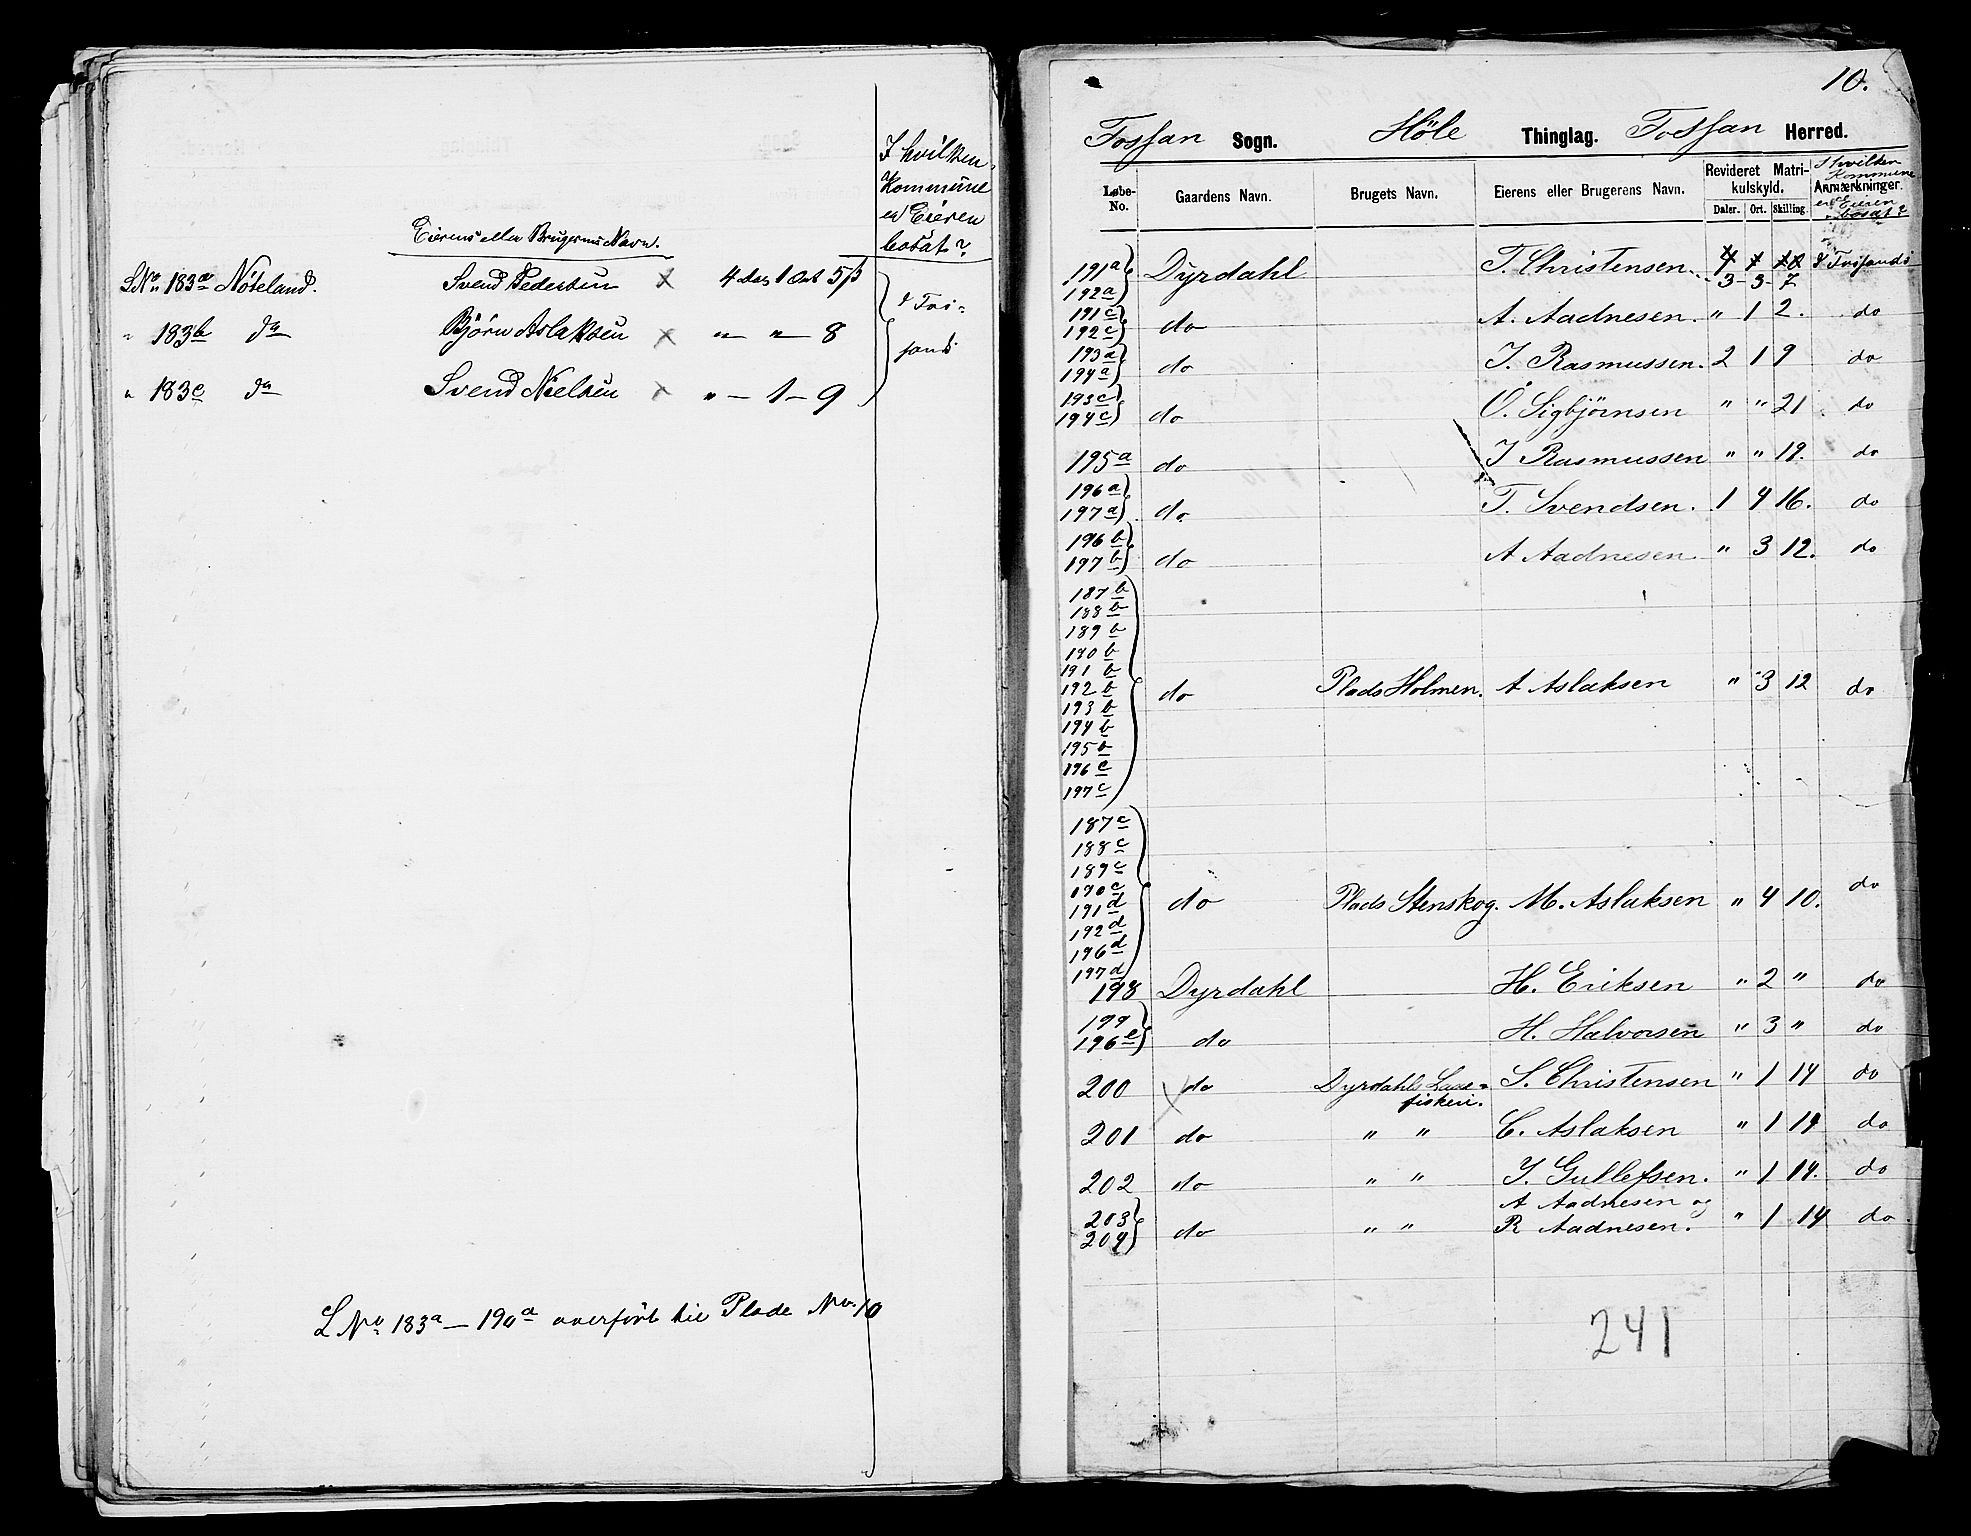 I hvilken
Kommune
er Eieren
bosat?
Eierens eller Brugerens Navn.
LNo 183a Nöteland. Svend Pedersen x 4 Daler 1 Ort 5 ß
" 183b do Björn Aslaksen x " — " — 8
" 183c do Svend Nielsen x " — 1 — 9
i Fos-
sand
L No 183a — 190a overfört til Plade No. 10
10.
Fossan Sogn. Höle Thinglag. Fossan Herred.
Løbe-No. Gaardens Navn. Brugets Navn. Eierens eller Brugerens Navn. Revideret Matrikulskyld. Daler. Ort. Skilling Anmærkninger. I hvilken Kommune er Eieren bosat?
191a
192a Dyrdahl T. Christensen. 4 1 10 i Fossand
3 - 3 - 7
191c
192c do A. Aadnesen. " 1 2. do
193a
194a do J. Rasmussen. 2 1 9 do
193c
194c do O. Sigbjörnsen " " 21 do
195a do J Rasmussen " " 19. do
196a
197a do T. Svendsen. 1 4 16. do
196b
197b do A Aadnesen " 3 12. do
187b
188b
189b
190b
191b
192b do Plads Holmen. A Aslaksen " 3 12 do
193b
194b
195b
196c
197c
187c
188c
189c
190c
191d do Plads Stenskog. M. Aslaksen " 4 10. do
192d
196d
197d
198 Dyrdahl H. Eriksen " 2 " do
199
196e do H. Halvorsen " 3 " do
200 do Dyrdahls Laxe- S. Christensen " 1 14 do
fiskeri.
201 do " " C. Aslaksen " 1 14 do
202 do " " J. Gullefsen. " 1 14. do
203 A Aadnesen og
204 do " " R Aadnesen. " 1 14 do
241